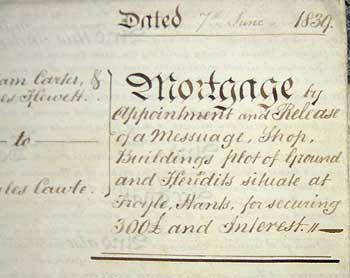 Dated 7th June 1839.
am Carter, &
es Hewett.
to
les Cawte.
Mortgage by
Appointment and Release
of a Messuage, Shop,
Buildings plot of Ground
and Heredits situate at
Froyle, Hants, for securing
300£ and Interest.